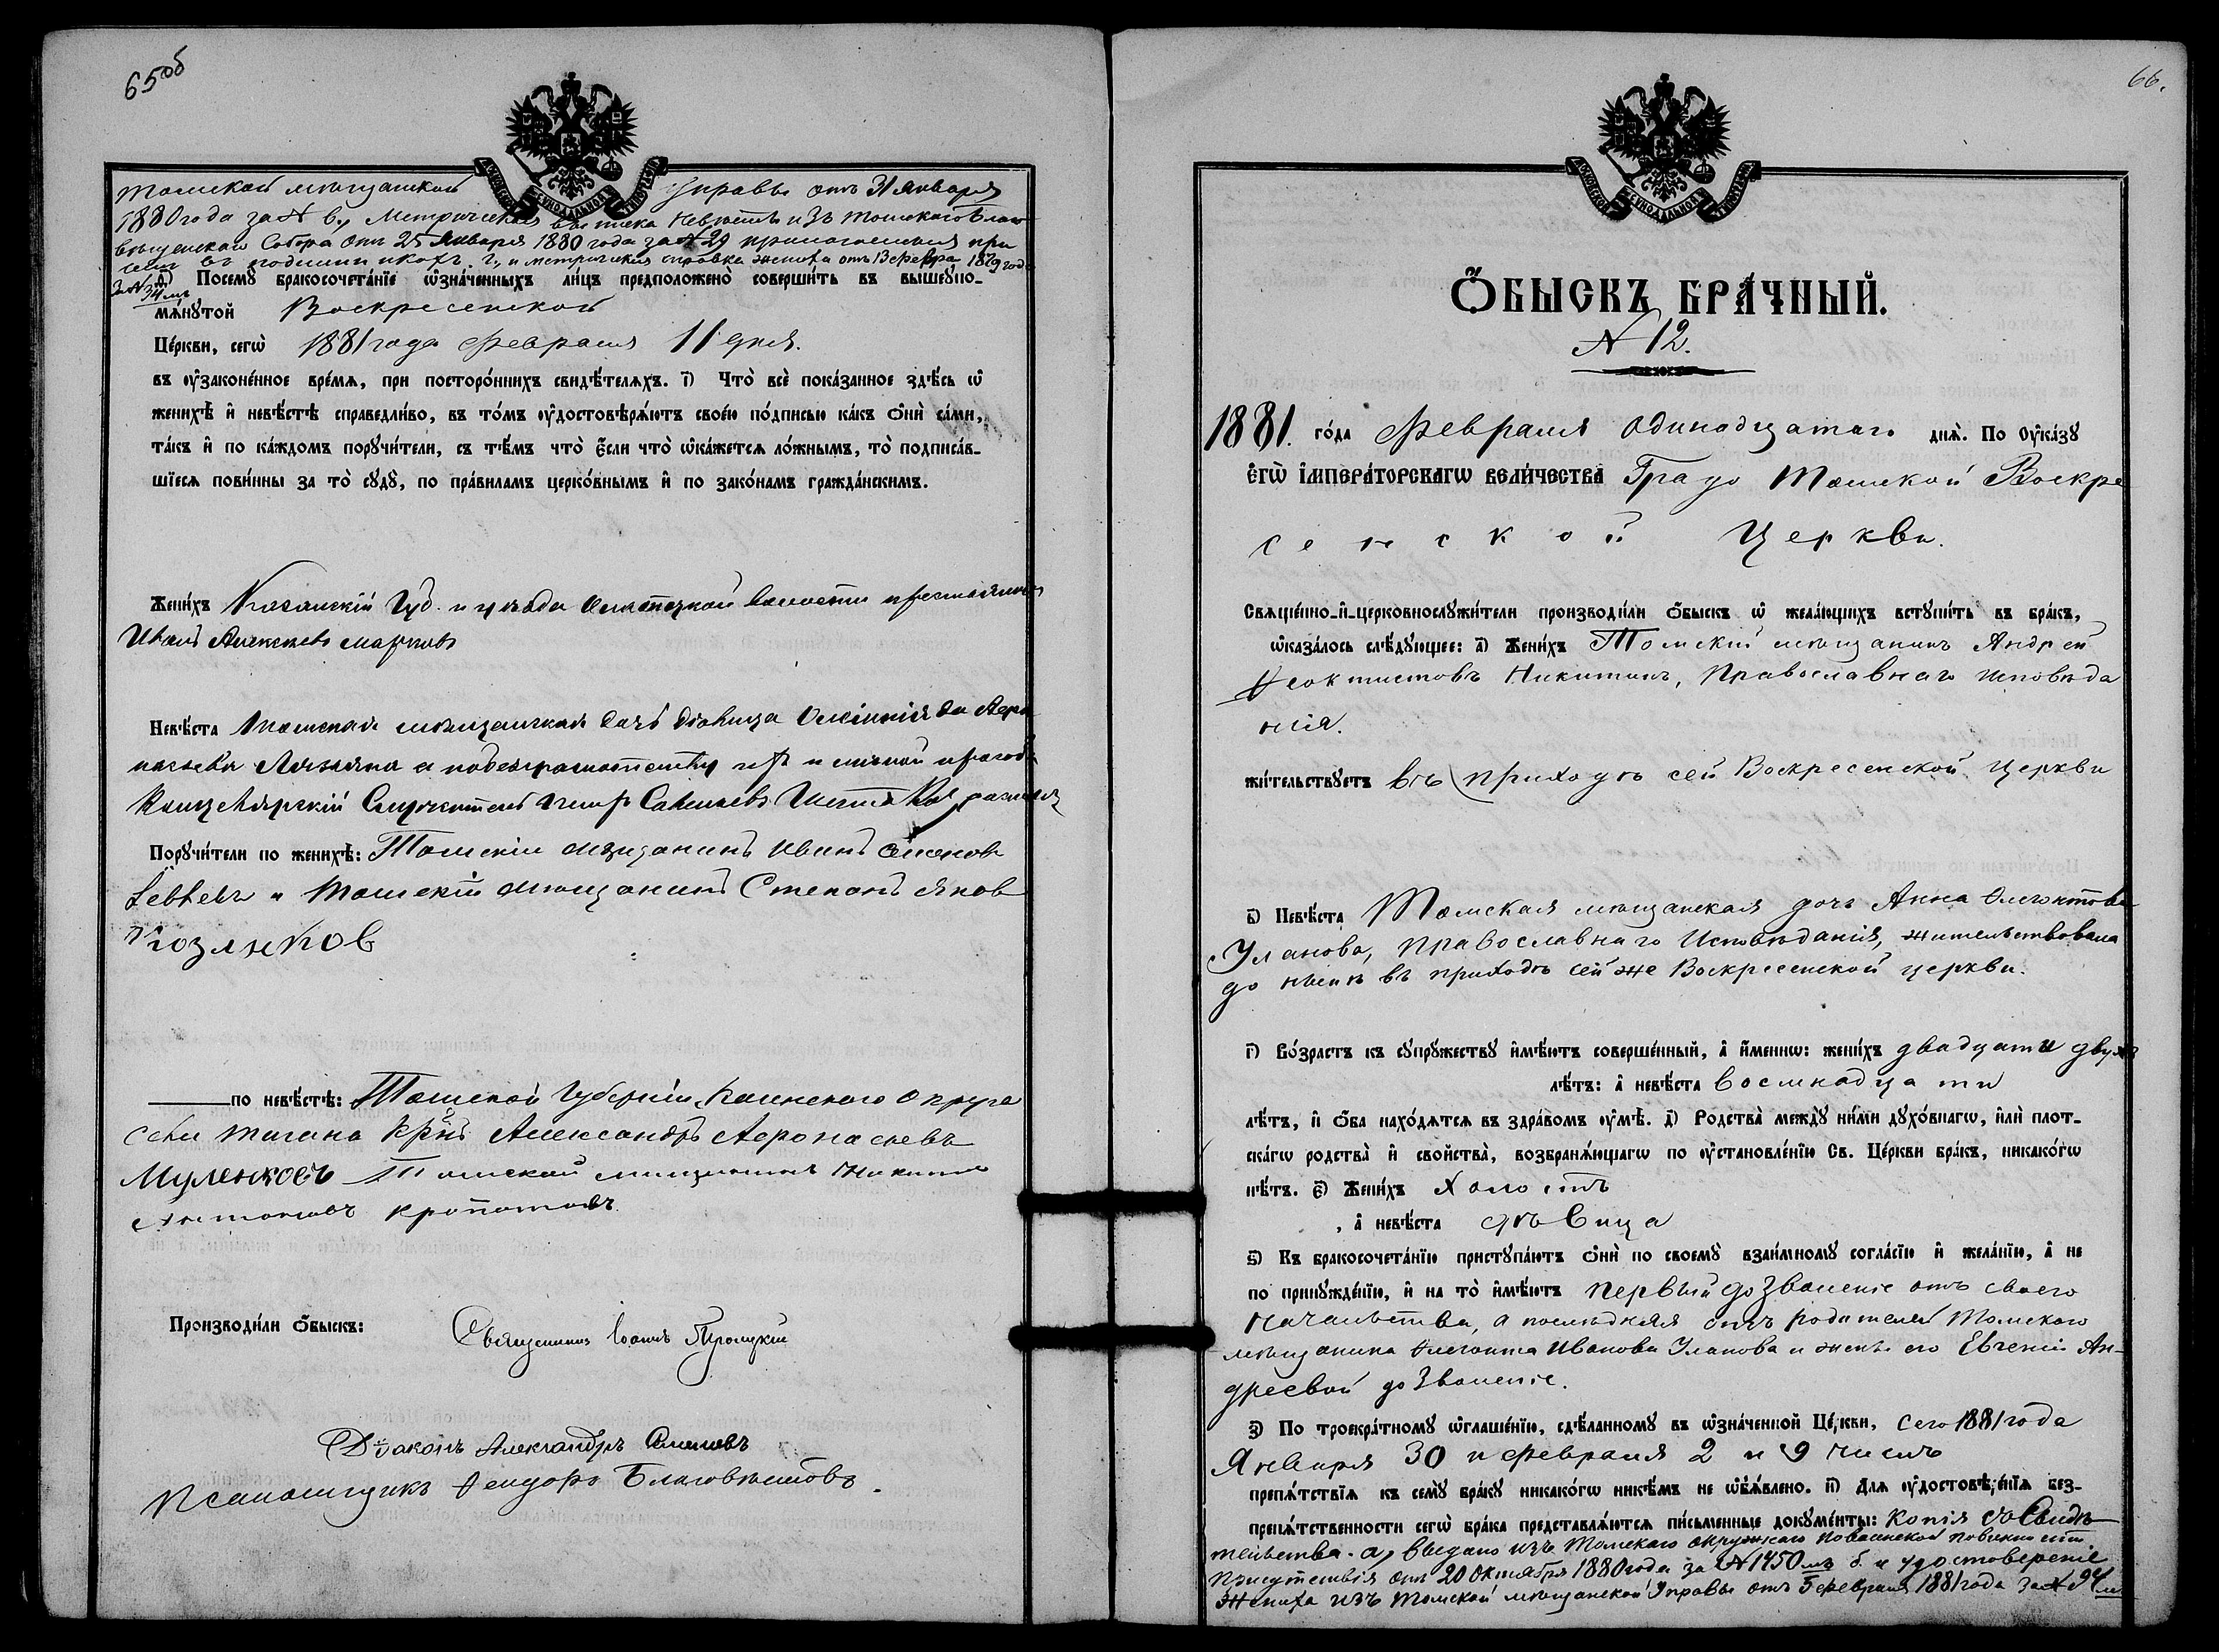 65об
Томской мѣщанской Управы отъ 31 Января
1880 года за № 6., Метрическая выписка невѣсты изъ Томскаго Благо
вѣщенскаго Собора отъ 25 Января 1880 года за № 29 приложенныя при
семъ и метрическая справка жениха отъ 13 Февра 1879 года
за № 34мъ
д҃) Посемꙋ̀ бракосочета́нїе ѡ҆зна́ченныхъ ли́цъ предположено̀ соверши́ть въ вышеꙋпо-
мѧ́нꙋтой Воскресенской
Це́ркви, сегѡ̀ 1881 года Февраля 11 дня.
въ ᲂу҆законе́нное вре́мѧ, при посторо́ннихъ свидѣ́телѧхъ. і҃) Что̀ всѐ пока́занное здѣ́сь ѡ҆
женихѣ̀ и҆ невѣ́стѣ справедли́во, въ то́мъ ᲂу҆достовѣрѧ́ютъ свое́ю по́дписью ка́къ ѻ҆нѝ са́ми,
та́къ и҆ по ка́ждомъ порꙋчи́тели, съ тѣ́мъ что̀ є҆́сли что̀ ѡ҆ка́жетсѧ ло́жнымъ, то̀ подписа́в-
шїесѧ пови́нны за то̀ сꙋдꙋ̀, по пра́виламъ церко́внымъ и҆ по зако́намъ гражда́нскимъ.
Жени́хъ Казанскій Губ. и уѣзда волости крестьянинъ
Иванъ Алексѣевъ Марковъ
Невѣ́ста Томская мѣщанская дочь дѣвица
а по безграмотству и личной прозьбѣ
Канцелярскій Служитель Петръ Савельевъ
Порꙋчи́тели по женихѣ̀: Томскій мѣщанинъ Иванъ Семенов
и Томскій мѣщанинъ Степанъ Яков
Козляков
по невѣ́стѣ: Томской Губерніи Каинскаго Округа
села Тагана Крнъ Александръ Афонасьевъ
Муленковъ Томской мещанинъ Никита
Антоновъ Кропотовъ
Производи́ли ѻ҆́быскъ: Священникъ Іоаннъ
Діаконъ Александръ
Псаломщикъ Ѳеодоръ Благовѣстовъ.
66.
Ѻ҆́БЫСКЪ БРА́ЧНЫЙ.
№ 12.
1881. го́да Февраля одинадцатаго днѧ̀. По Оу҆ка́зꙋ
є҆гѡ̀ і҆мпера́торскагѡ вели́чества Градо Томской Воскре
сенской Церкви.
Свѧще́нно-и҆-церковнослꙋжи́тели производи́ли ѻ҆́быскъ ѡ҆ жела́ющихъ вступи́ть въ бра́къ,
ѡ҆каза́лось слѣ́дꙋющее: а҃) Жени́хъ Томскій мѣщанинъ Андрей
Ѳеоктистовъ Никитинъ, Православнаго исповѣда
нія.
жи́тельствꙋетъ въ приходѣ сей Воскресенской церкви
в҃) Невѣ́ста Томская мѣщанская дочь Анна Ѳлегонтова
Уланова, Православнаго Исповѣданія, жительствовала
до нынѣ въ приходѣ сей же Воскресенской церкви.
г҃) Во́зрастъ къ сꙋпрꙋ́жествꙋ и҆мѣ́ютъ соверше́нный, а҆ и҆́меннѡ: жени́хъ двадцати двухъ
лѣ́тъ: а҆ невѣ́ста восмнадцати
лѣ́тъ, и҆ ѻ҆́ба нахо́дѧтсѧ въ здра́вомъ ᲂу҆мѣ̀. д҃) Родства̀ междꙋ̀ ни́ми дꙋхо́внагѡ, и҆лѝ плот-
ска́гѡ родства̀ и҆ сво́йства, возбранѧ́ющагѡ по ᲂу҆становле́нїю Св. Це́ркви бра́къ, никако́гѡ
нѣ́тъ. є҃) Жени́хъ Холостъ
, а҆ невѣ́ста дѣвица
ѕ҃) Къ бракосочета́нїю пристꙋпа́ютъ ѻ҆нѝ по своемꙋ̀ взаи́мномꙋ согла́сїю и҆ жела́нїю, а҆ не
по принꙋжде́нїю, и҆ на то̀ и҆мѣ́ютъ первый дозволеніе отъ своего
Начальства, а последняя отъ родителей Томскаго
мѣщанина Ѳлегонта Иванова Уланова и жены его Евгеніи Ан-
дреевой дозволеніе.
з҃) По троекра́тномꙋ ѡ҆глаше́нїю, сдѣ́ланномꙋ въ ѡ҆зна́ченной Це́ркви, сего 1881 года
Января 30 и Февраля 2 и 9 чиселъ
препѧ́тствїѧ къ семꙋ̀ бра́кꙋ никако́гѡ никѣ́мъ не ѡ҆б̾ѧ́влено. и҃) Длѧ ᲂу҆достовѣре́нїѧ без-
препѧ́тственности сегѡ̀ бра́ка представлѧ́ютсѧ пи́сьменные докꙋме́нты: Копія съ Свидѣ
тельства. а, выдано изъ Томскаго окружнаго по воинской повинности
присутствія отъ 20 Октября 1880 года за № 1450мъ б. и удостовереніе
Жениха изъ Томской мѣщанской Управы отъ 5 Февраля 1881 года за № 94м